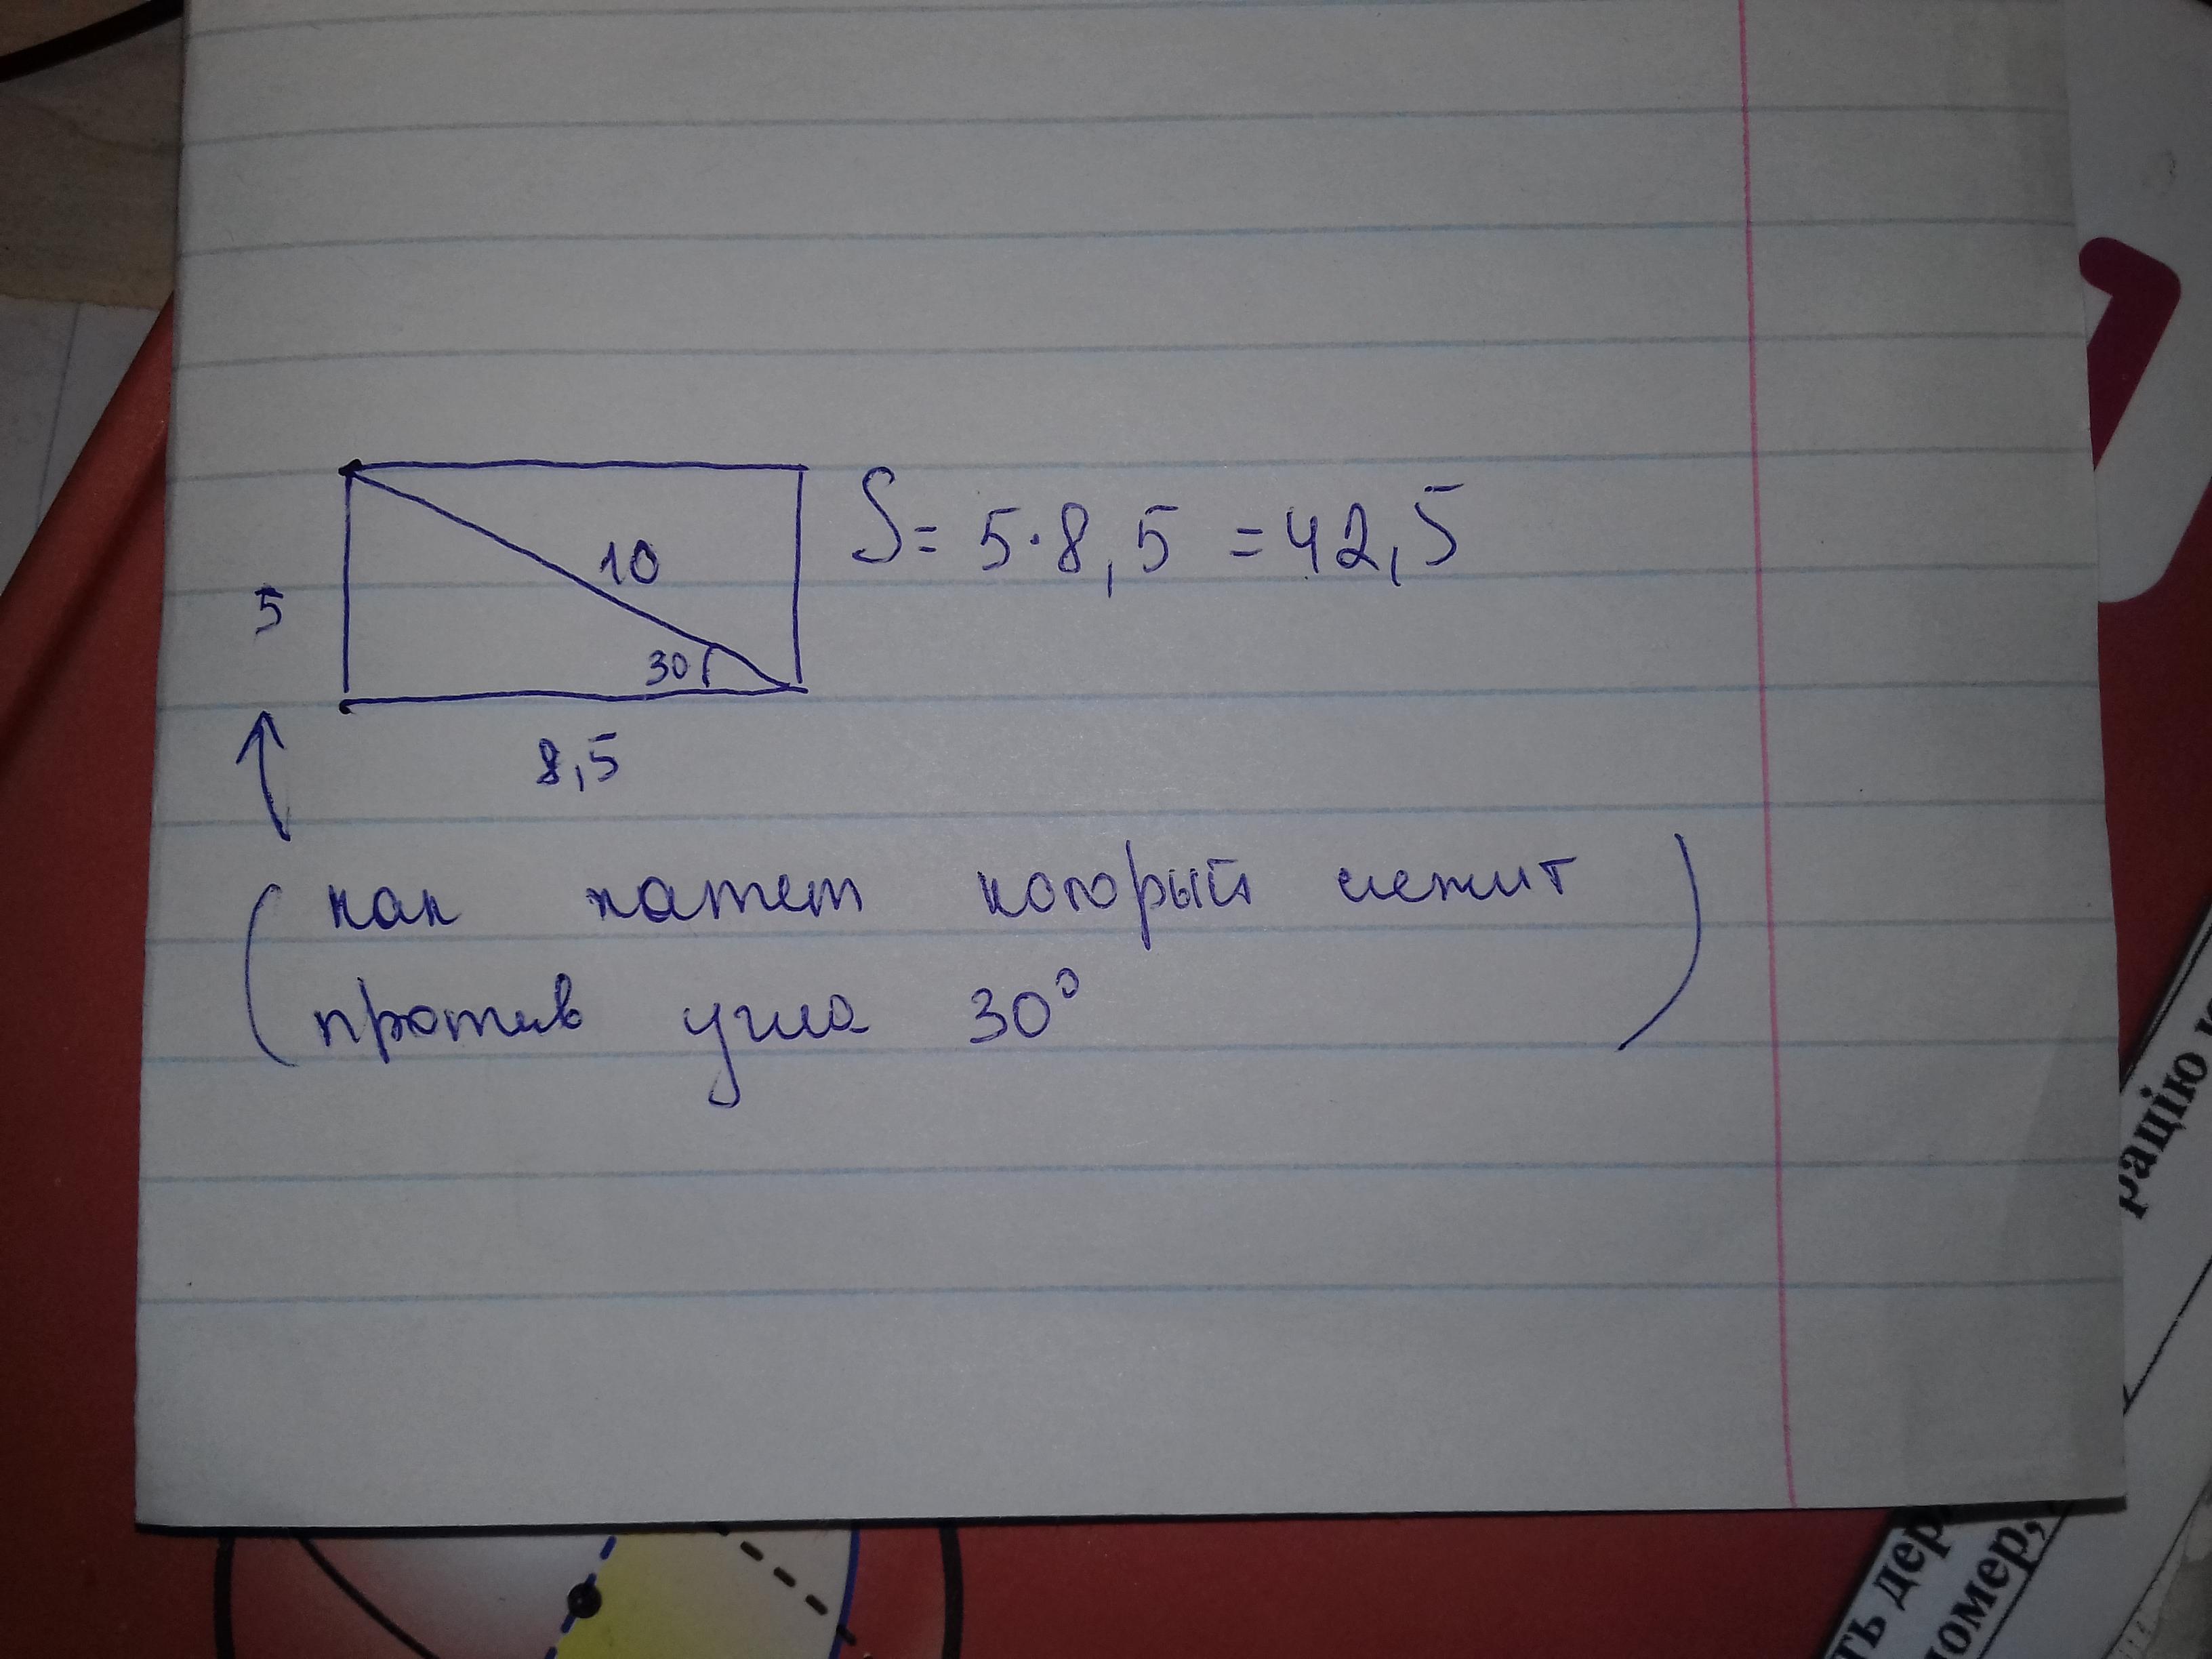 10
S = 5·8,5 = 42,5
5
30
8,5
(как катет который лежит
против угла 30°)
рацію
ть дер
номер,